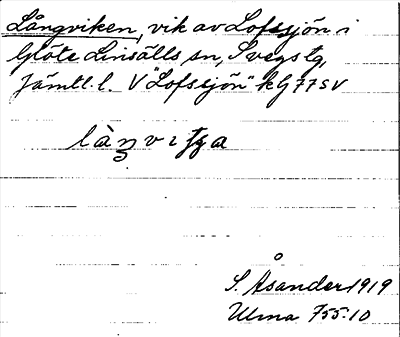 Långviken, vik av Lofssjön i
Glöte Linsälls sn, Svegs tg,
Jämtl. l. V "Lofssjön" kG 77 SV
S. Åsander 1919
Ulma 755:10